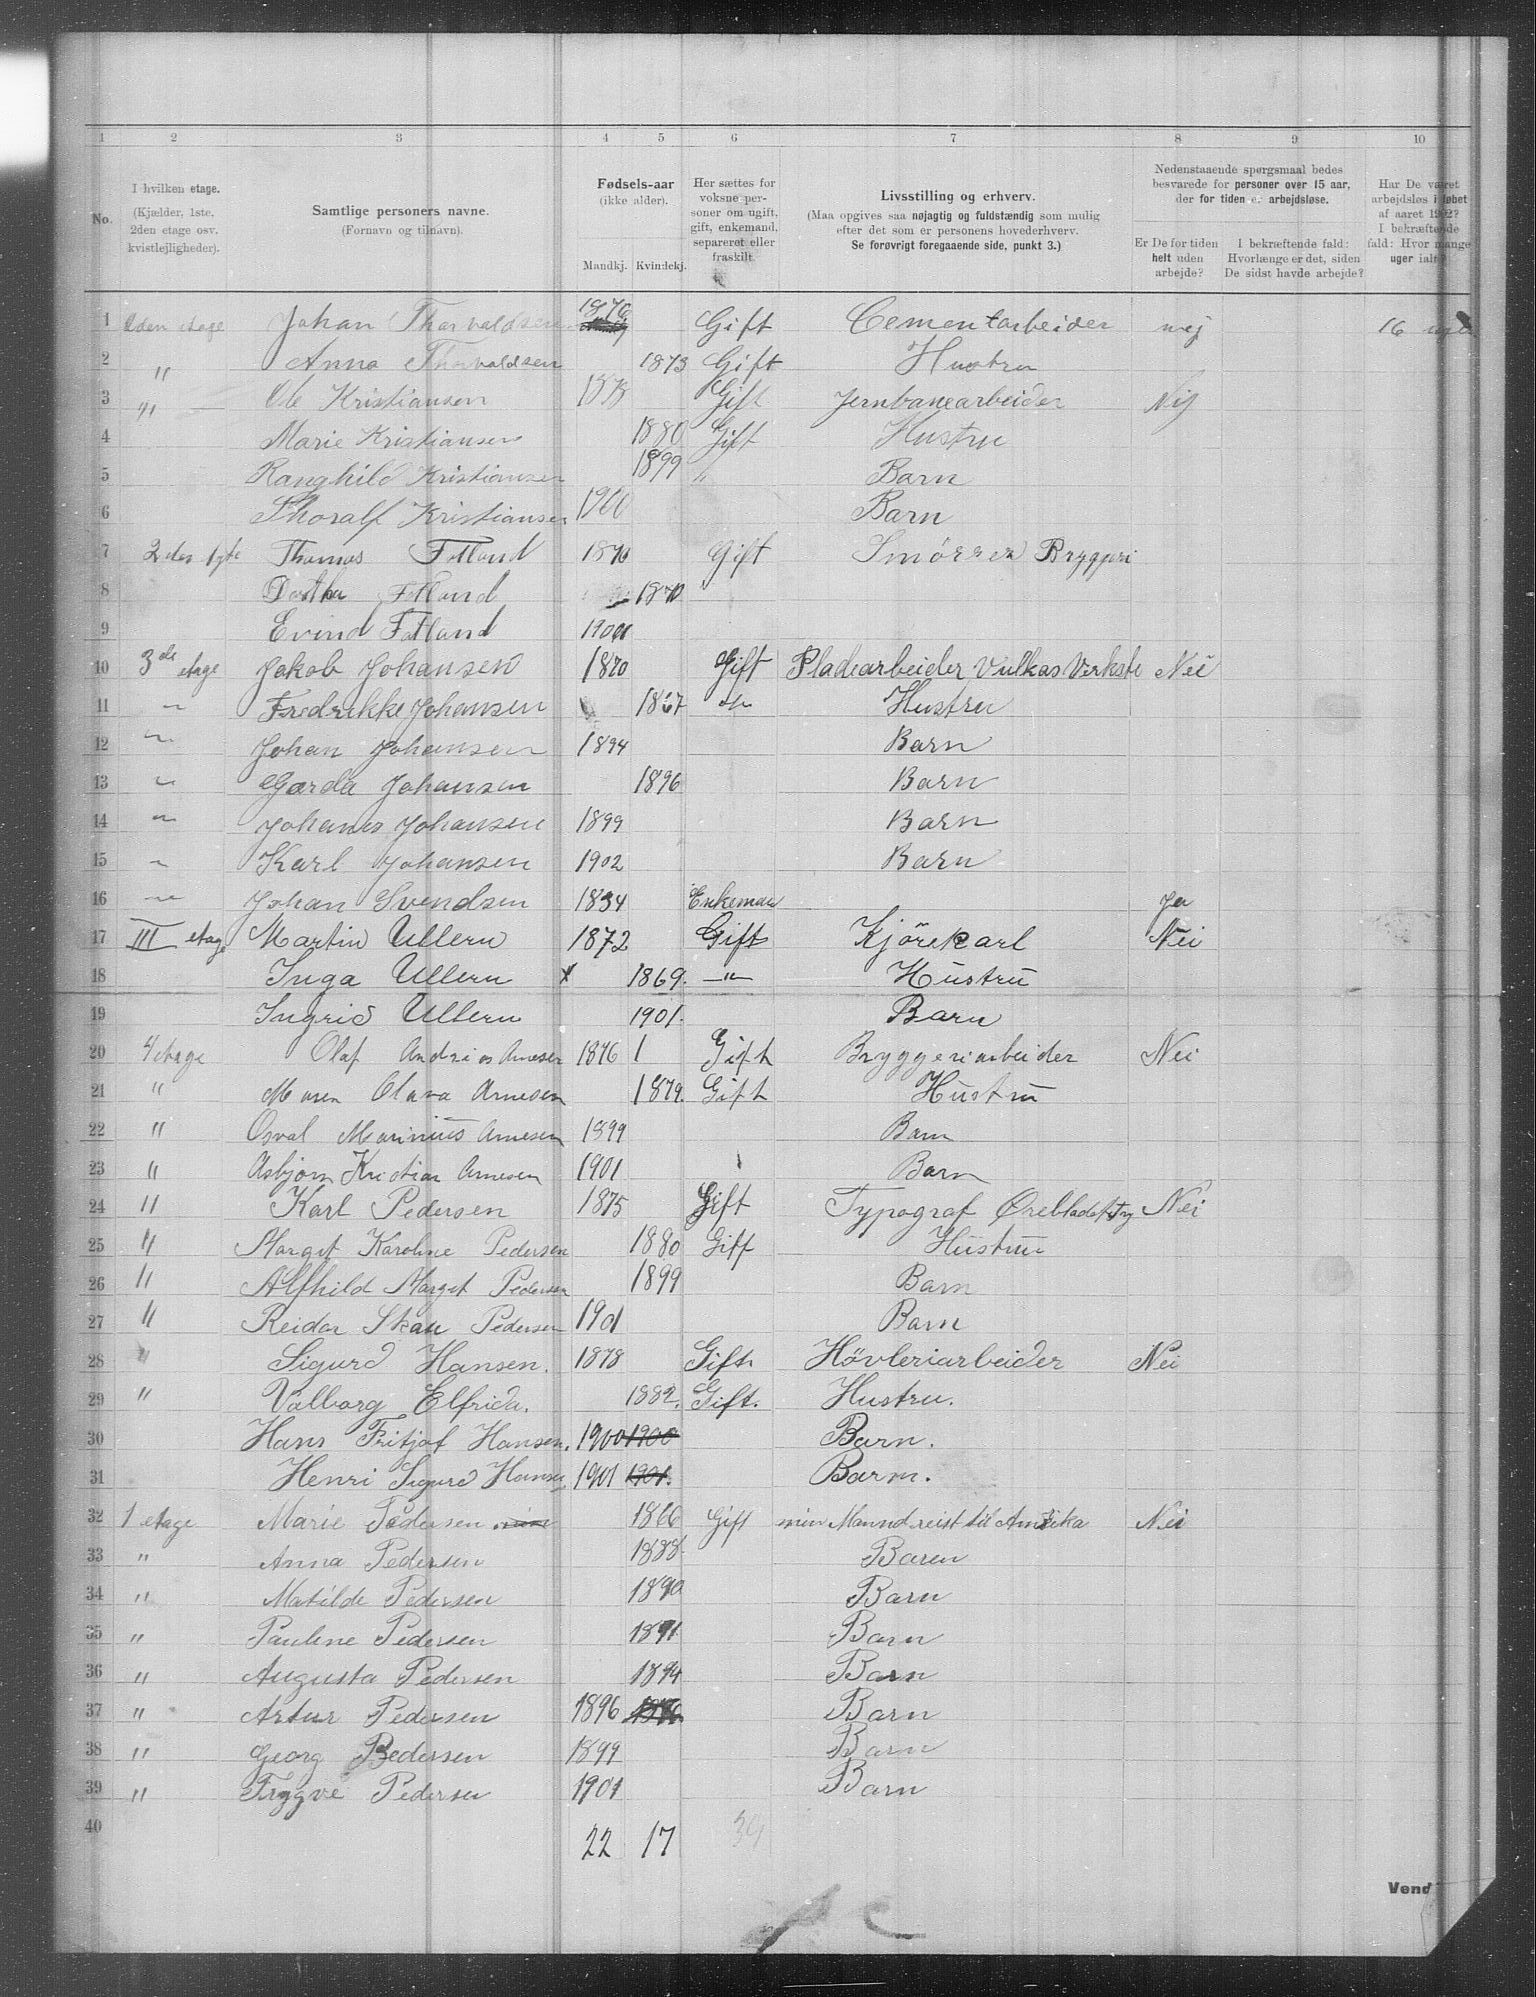 1 2 3 4 5 6 7 8 9 10
No.
I hvilken etage.
(Kjælder, 1ste, 2den etage osv. kvistlejligheder).
Samtlige personers navne.
(Fornavn og tilnavn).
Fødsels-aar
(ikke alder).
Mandkj. Kvindekj.
Her sættes for voksne personer om ugift, gift, enkemand, separeret eller fraskilt.
Livsstilling og erhverv.
(Maa opgives saa nøjagtig og fuldstændig som mulig efter det som er personens hovederhverv.
Se forøvrigt foregaaende side, punkt 3.)
Nedenstaaende spørgsmaal bedes besvarede for personer over 15 aar, der for tiden er arbejdsløse.
Er De for tiden helt uden arbejde?
I bekræftende fald: Hvorlænge er det, siden De sidst havde arbejde?
Har De været arbejdsløs i løbet af aaret 1902? I bekræftende fald: Hvor mange uger ialt?
1 2den etage Johan Thorvaldsen 1876 Gift Cementarbeider nej 16
2 " Anna Thorvaldsen 1873 Gift Hustru
3 " Ole Kristiansen 1873 Gift Jernbanearbeider Nej
4 Marie Kristiansen 1880 Gift Hustru
5 Ranghild Kristiansen 1899 " Barn
6 Thoralf Kristiansen 1900 Barn
7 Thomas Fotland 1870 Gift Smörrer Bryggeri
8 Fotland 1870
9 Evind Fotland 1900
10 3de etage Jakob Johansen 1870 Gift Pladearbeider Vulkas Verkste Nei
11 " Fredrikke Johansen 1867 " Hustru
12 " Johan Johansen 1894 Barn
13 " Gærda Johansen 1896 Barn
14 " Johanes Johansen 1899 Barn
15 " Karl Johansen 1902 Barn
16 " Johan Svendsen 1834 Enkeman Ja
17 III etage Martin Ullern 1872 Gift Kjörekarl Nei
18 Inga Ullern x 1869. —"— Hustru
19 Ingrid Ullern 1901. Barn
20 4 etage Olaf Andrias Arnesen 1876 1 Gift Bryggeriarbeider Nei
21 " Maren Olava Arnesen 1879. Gift Hustru
22 " Osval Marinius Arnesen 1899 Barn
23 " Asbjørn Kristian Arnesen 1901 Barn
24 " Karl Pedersen 1875 Gift Typograf Ørebladet Nei
25 " Margit Karoline Pedersen 1880 Gift Hustru
26 " Alfhild Margit Pedersen 1899 Barn
27 " Reidar Skau Pedersen 1901 Barn
28 " Sigurd Hansen. 1878 Gift Hövleriarbeider Nei
29 " Valborg Elfrida. 1882. Gift. Hustru.
30 Hans Fritjof Hansen. 1900 1900 Barn.
31 Henri Sigurd Hansen 1901 1901. Barn.
32 1 etage Marie Pedersen 1866 Gift min Mannd reist til Amerika Nei
33 " Anna Pedersen 1888. Baren
34 " Matilde Pedersen 1890 Barn
35 " Pauline Pedersen 1891 Barn
36 " Augusta Pedersen 1894 Barn
37 " Artur Pedersen 1896 Barn
38 " Georg Pedersen 1899 Barn
39 " Trygve Pedersen 1901 Barn
40
22 17 39
Vend